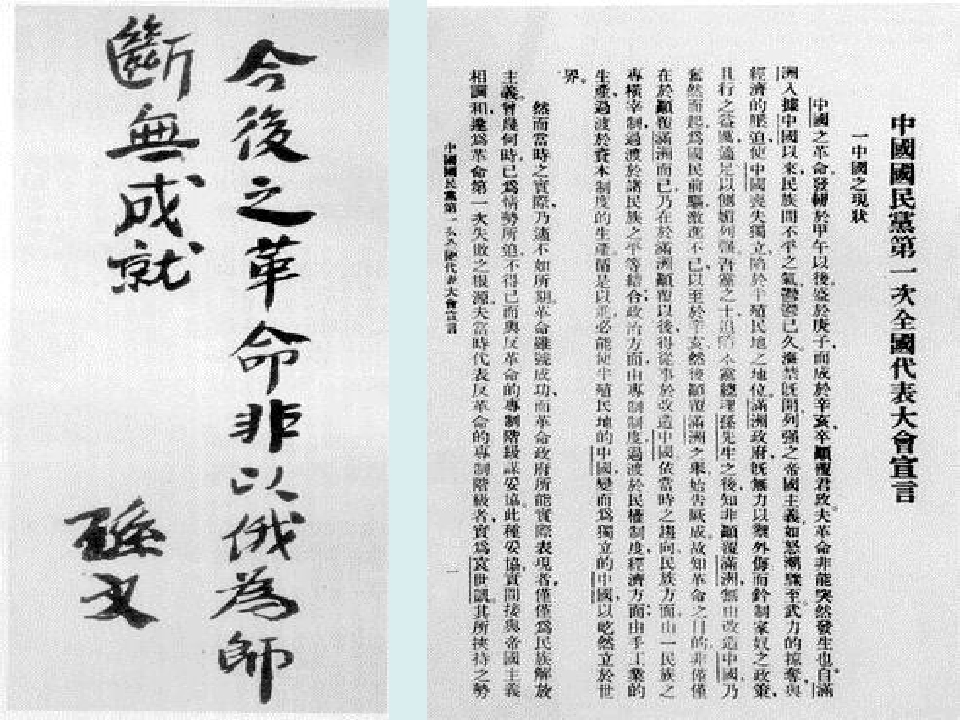 今後之革命非以俄為師
斷無成就
孫文
中國國民黨第一次全國代表大會宣言
一中國之現狀
中國之革命.發軔於甲午以後.盛於庚子.而成於辛亥.卒顛覆君政.夫革命非能突然發生也.自滿
洲入據中國以來.民族間不平之氣.鬱積已久.海禁既開.列强之帝國主義.如怒潮驟至.武力的掠奪.與
經濟的壓迫.使中國喪失獨立.陷於半殖民地之地位.滿洲政府.既無力以禦外侮.而鈐制家奴之政策.
且行之益厲.適足以側媚列强.吾黨之士.追隨本黨總理孫先生之後.知非顛覆滿洲.無由改造中國.乃
奮然而起.爲國民前驅.激進不已.以至於辛亥.然後顛覆滿洲之舉.始告厥成.故知革命之目的.非僅僅
在於顛覆滿洲而已.乃在於滿洲顛覆以後.得從事於改造中國.依當時之趨向.民族方面.由一民族之
專橫宰制.過渡於諸民族之平等結合.政治方面.由專制制度過渡於民權制度.經濟方面.由手工業的
生產.過渡於資本制度的生產.循是以進.必能使半殖民地的中國.變而爲獨立的中國.以屹然立於世
界.
然而當時之實際.乃適不如所期.革命雖號成功.而革命政府所能實際表現者.僅僅爲民族解放
主義.曾幾何時.已爲情勢所迫.不得已而與反革命的專制階級謀妥協.此種妥協.實間接與帝國主義
相調和.遂爲革命第一次失敗之根源.夫當時代表反革命的專制階級者.實爲袁世凱.其所挾持之勢
中國國民黨第一次全國代表大會宣言
一